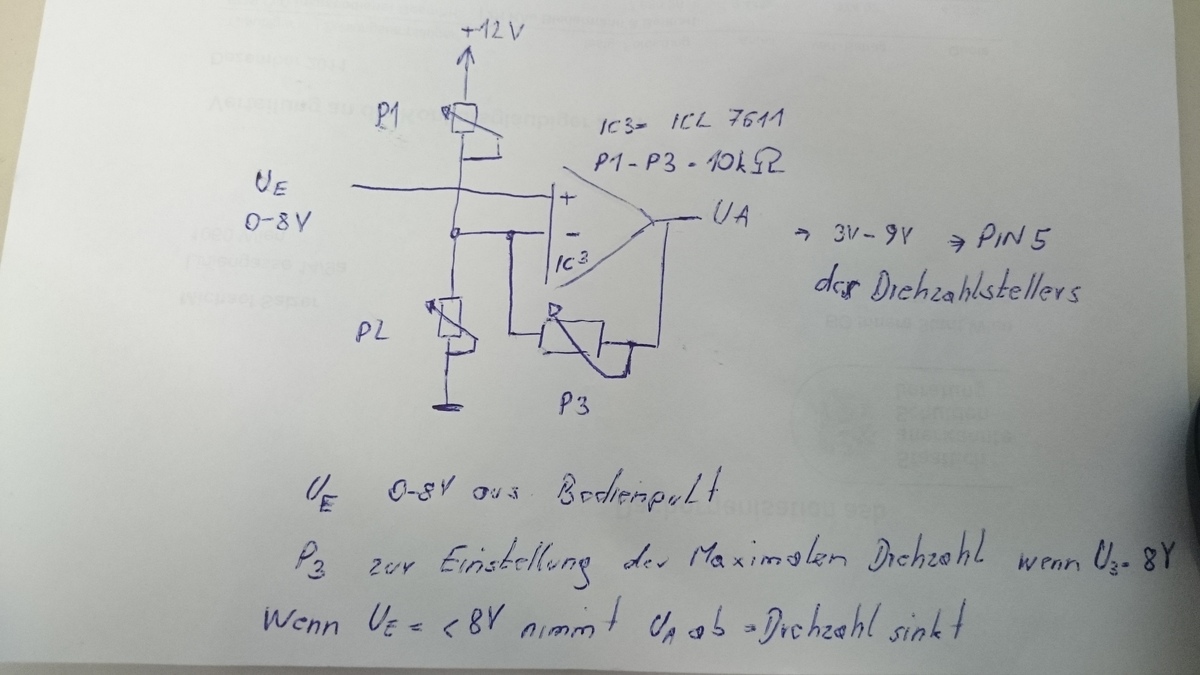 +12V
P1
IC3= ICL 7611
P1-P3 - 10kΩ
UE
0-8V
+
-
IC3
UA
⇒ 3V-9V ⇒ PIN 5
des Drehzahlstellers
P2
P3
UE 0-8V aus Bedienpult
P3 zur Einstellung der Maximalen Drehzahl wenn U3= 8V
Wenn UE = <8V nimmt UA ab = Drehzahl sinkt